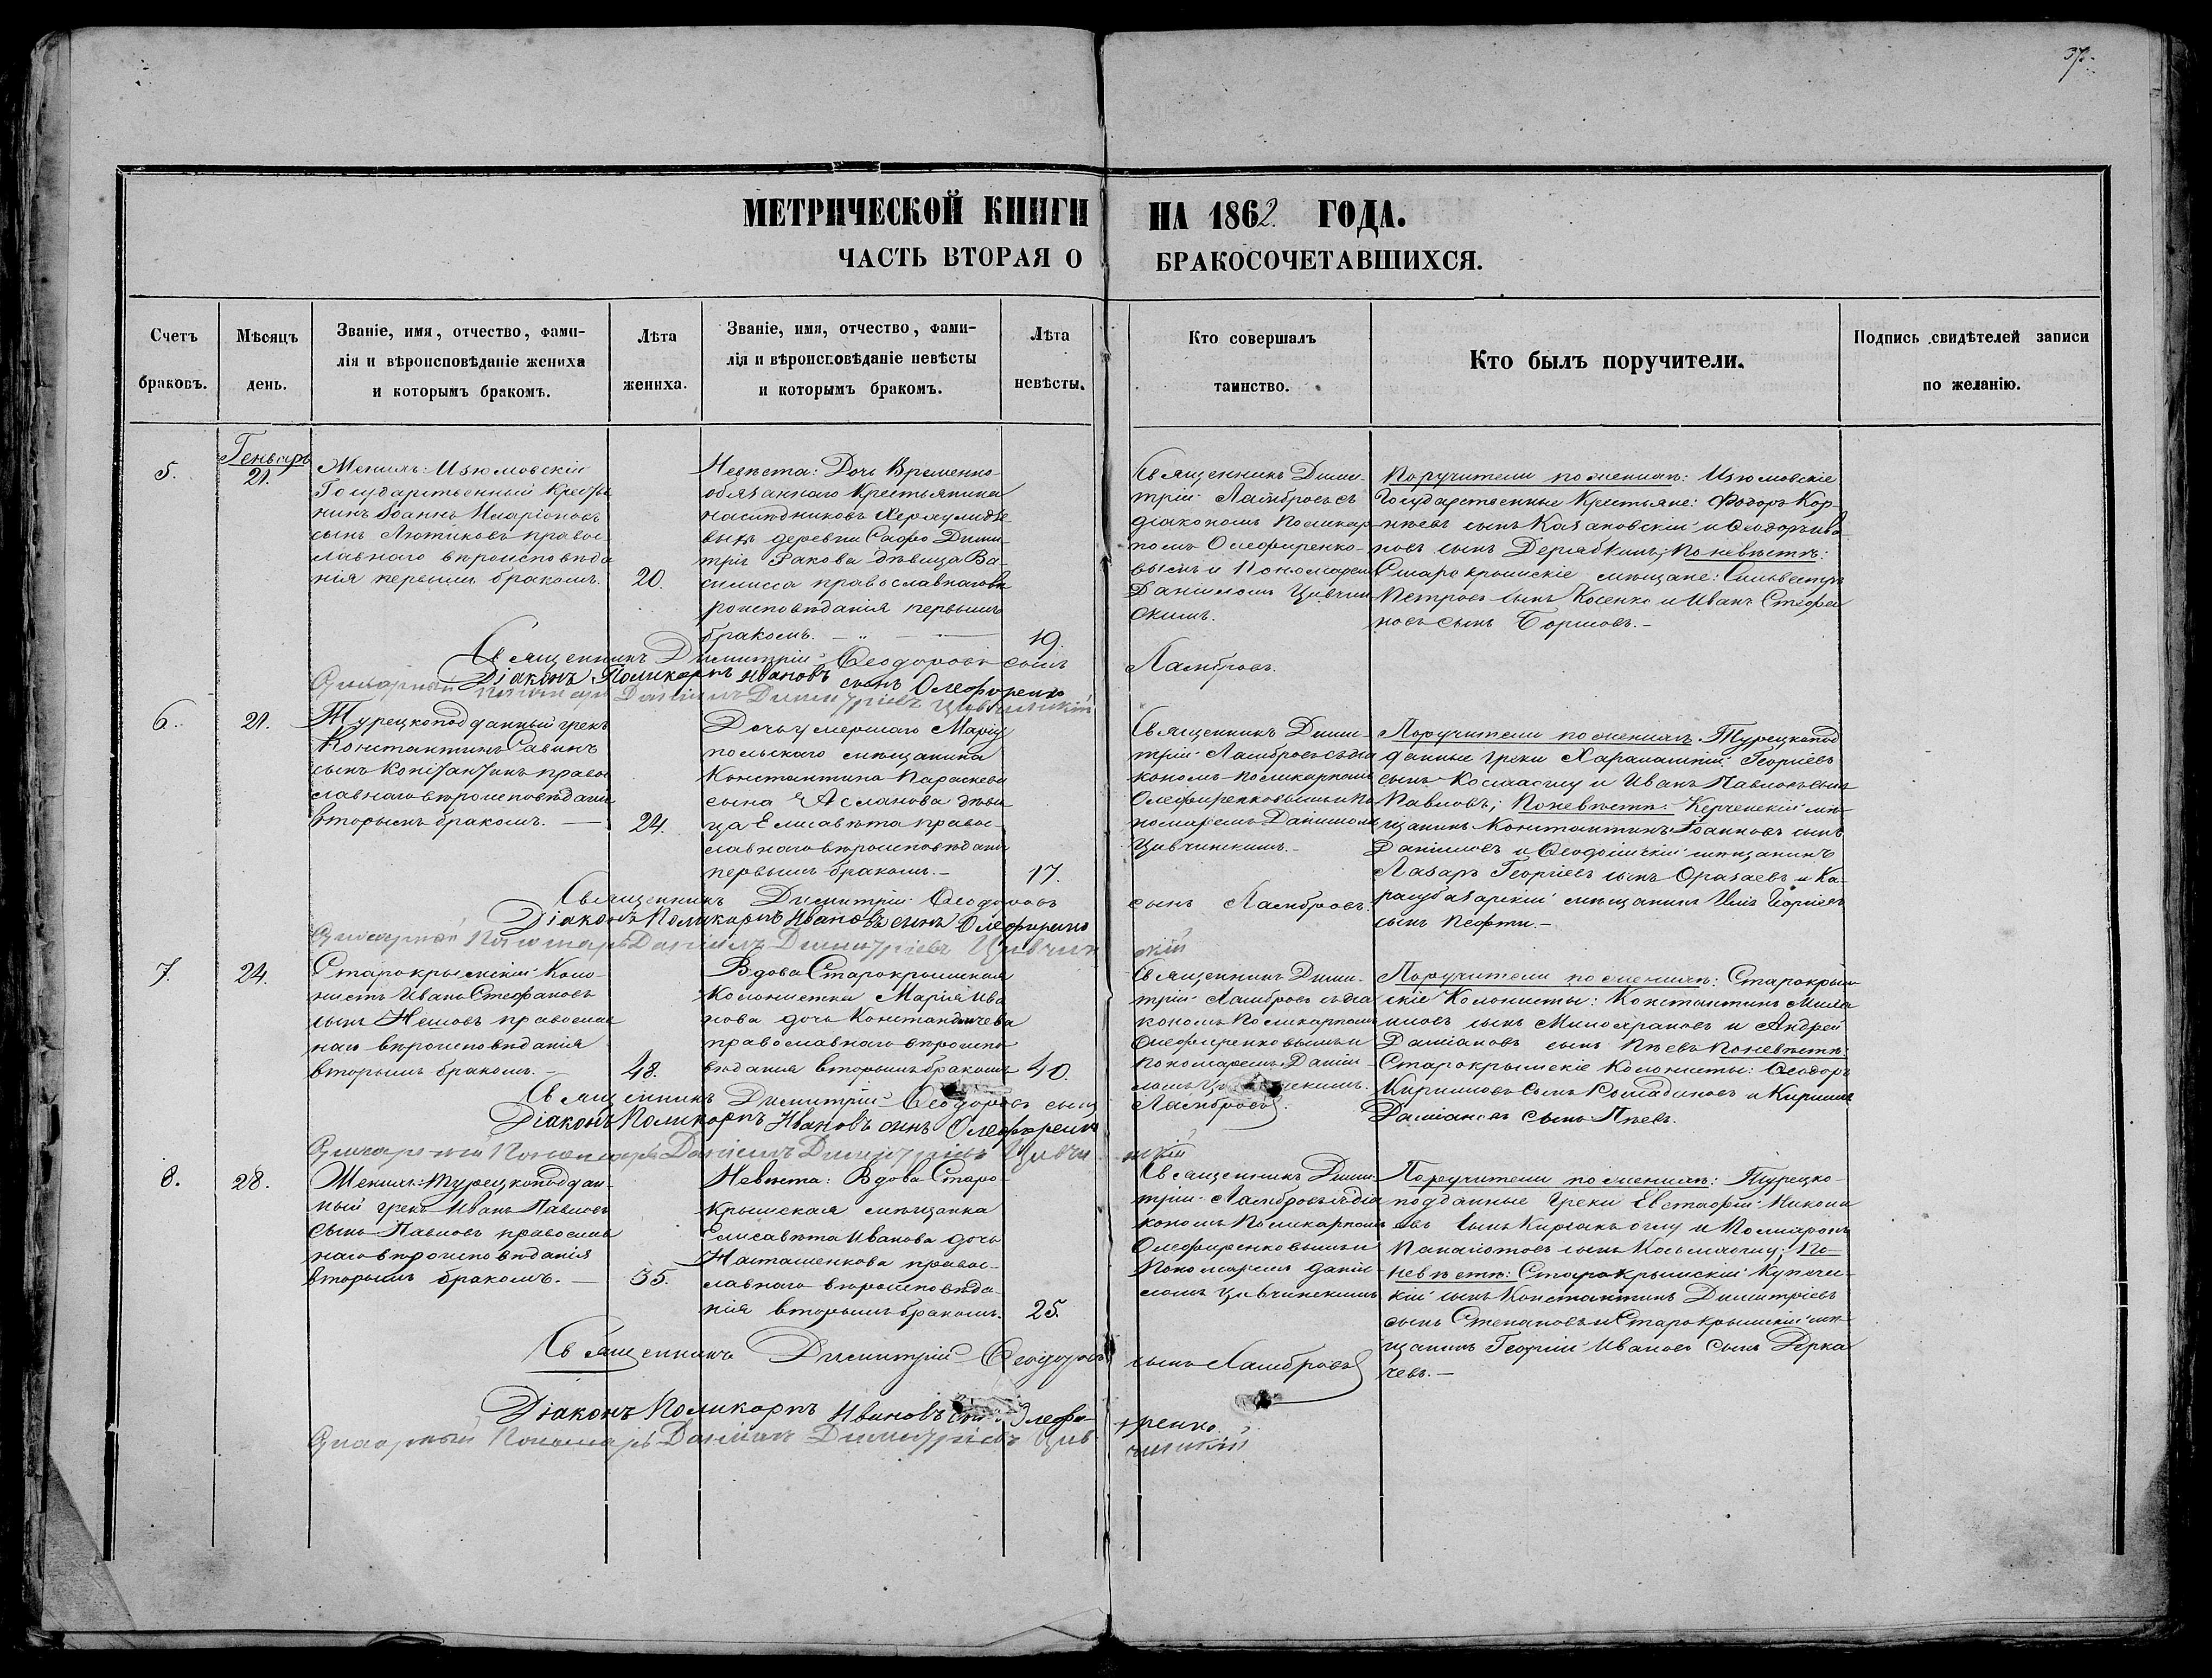 37.
МЕТРИЧЕСКОЙ КНИГИ НА 1862. ГОДА.
ЧАСТЬ ВТОРАЯ О БРАКОСОЧЕТАВШИХСЯ.
Счетъ
браковъ.
Мѣсяцъ
день.
Званіе, имя, отчество, фами-
лія и вѣроисповѣданіе жениха
и которымъ бракомъ.
Лѣта
жениха.
Званіе, имя, отчество, фами-
лія и вѣроисповѣданіе невѣсты
и которымъ бракомъ.
Лѣта
невѣсты.
Кто совершалъ
таинство.
Кто былъ поручители.
Подпись свидѣтелей записи
по желанію.
5.
Генварь
21.
Женихъ: Изюмовскій
Государственный Крестья
нинъ Іоаннъ Иларіоновъ
сынъ Лютиковъ правос
лавнаго вѣроисповѣда
нія первымъ бракомъ.
20.
Невѣста: Дочь Временно
обязаннаго Крестьянина
наслѣдниковъ
деревни Дими-
трія Ракова дѣвица Ва-
силисса православнаго вѣ
роисповѣданія первымъ
бракомъ. —
19.
Священникъ Дими-
трій Ламбровъ съ
діакономъ Поликар
помъ Олефиренко-
вымъ и Пономаремъ
Даніиломъ Цивчин
скимъ.
Поручители по женихѣ: Изюмовскіе
Государственные Крестьяне: Ѳедоръ Кор-
нѣевъ сынъ Казановскій и Ѳеодоръ Ива
новъ сынъ Дерябкинъ; по невѣстѣ:
Старокрымскіе мѣщане: Сильвестръ
Петровъ сынъ Косенко и Иванъ Стефа
новъ сынъ Боршовъ. —
Священникъ Димитрій Ѳеодоровъ сынъ Ламбровъ.
Діаконъ Поликарпъ Ивановъ сынъ Олефиренко
Пономарь Даніилъ Димитріевъ Цивчинскій
6.
21.
Турецкоподданный грекъ
Константинъ Савинъ
сынъ Константинъ правос
лавнаго вѣроисповѣданія
вторымъ бракомъ. —
24.
Дочь умершаго Маріу
польскаго мѣщанина
Константина Параскева
сына Асланова дѣви
ца Елисавета правос-
лавнаго вѣроисповѣданія
первымъ бракомъ. —
17.
Священникъ Дими-
трій Ламбровъ съ діа
кономъ Поликарпомъ
Олефиренковымъ и По
номаремъ Даніиломъ
Цивчинскимъ. —
Поручители по женихѣ: Турецкопод
данные греки Харалампій Георгіевъ
сынъ и Иванъ Павловъ сынъ
Павловъ; По невѣстѣ: Керченскій мѣ-
щанинъ Константинъ Іоанновъ сынъ
Даниловъ и Ѳеодосійскій мѣщанинъ
Лазарь Георгіевъ сынъ Оразаевъ и Ка-
расубазарскій мѣщанинъ
сынъ Нефти. —
Священникъ Димитрій Ѳеодоровъ сынъ Ламбровъ.
Діаконъ Поликарпъ Ивановъ сынъ Олефиренко
Пономарь Даніилъ Димитріевъ Цивчинскій
7.
24.
Старокрымскій Коло-
нистъ Иванъ Стефановъ
сынъ Неновъ православ
наго вѣроисповѣданія
вторымъ бракомъ. —
48.
Вдова Старокрымская
Колонистка Марія Ива
нова дочь Констандичева
православнаго вѣроиспо
вѣданія вторымъ бракомъ
40.
Священникъ Дими-
трій Ламбровъ съ діа
кономъ Поликарпомъ
Олефиренковымъ и
Пономаремъ Даніи
ломъ Цивчинскимъ.
Поручители по женихѣ: Старокрым
скіе Колонисты: Константинъ
сынъ и Андрей
Даміановъ сынъ Пѣевъ По невѣстѣ:
Старокрымскіе Колонисты: Ѳеодоръ
Кирилловъ сынъ и Кирилъ
Даміановъ сынъ Пѣевъ.
Священникъ Димитрій Ѳеодоровъ сынъ Ламбровъ.
Діаконъ Поликарпъ Ивановъ сынъ Олефиренко
Пономарь Даніилъ Димитріевъ Цивчинскій
8.
28.
Женихъ: Турецкоподдан-
ный грекъ Иванъ Павловъ
сынъ Павловъ православ
наго вѣроисповѣданія
вторымъ бракомъ. —
35.
Невѣста: Вдова Старо
крымская мѣщанка
Елисавета Иванова дочь
Наташенкова правос-
лавнаго вѣроисповѣда-
нія вторымъ бракомъ.
25.
Священникъ Дими-
трій Ламбровъ съ діа
кономъ Поликарпомъ
Олефиренковымъ и
Пономаремъ Даніи-
ломъ Цивчинскимъ
Поручители по женихѣ: Турецко-
подданные Греки Евстафій Никола
евъ сынъ Киріакъ оглу и Поликарпъ
Панаіотовъ сынъ Козьмаоглу; По-
невѣстѣ: Старокрымскій Купече-
скій сынъ Константинъ Димитріевъ
сынъ Степановъ и Старокрымскій мѣ-
щанинъ Георгій Ивановъ сынъ Дерка
чевъ. —
Священникъ Димитрій Ѳеодоровъ сынъ Ламбровъ
Діаконъ Поликарпъ Ивановъ сынъ Олефиренко.
Пономарь Даніилъ Димитріевъ Цивчинскій